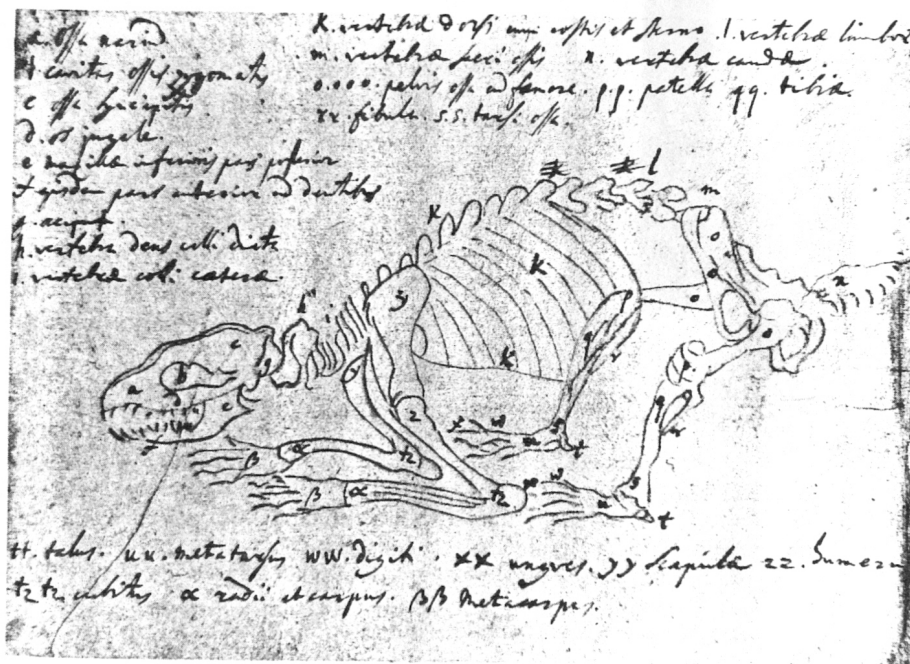 a. ossa nariũ
b cavitas ossis zygomatis
c ossa syncipitis.
d. os jugale.
e maxillæ inferioris pars posterior
f ejusdem pars anterior cũ dentibus
h. vertebra dens colli dicta
i. vertebræ colli cæteræ.
K. vertebræ dorsi cum costis et sterno. l. vertebræ lumbor
m. vertebræ sacri ossis n. vertebræ caudæ.
o.o.o.o. pelvis ossa cũ femore. p.p. patella qq. tibiæ.
rr. fibula. s.s. tarsi ossa.
l
m
K
n
K
y
o
o
o
i
h
K
p
c
b
a
d
e
q
z
x w
t
β
α
β α
w
u
s
t
tt. talus. uu. metatarsus ww. digiti. xx ungues. yy Scapula zz. humerus
tz tz. cubitus α radii et carpus. ββ Metacarpus.